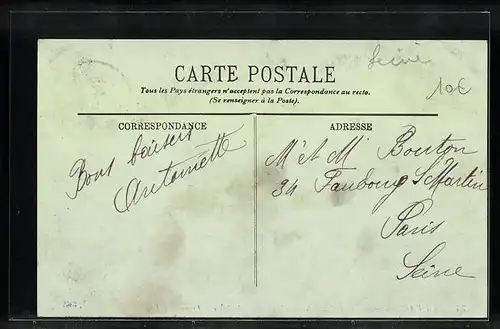 Seine
10€
CARTE POSTALE
Tous les Pays étrangers n'acceptent pas la Correspondance au recto.
(Se renseigner à la Poste).
CORRESPONDANCE
Bons baisers
Antoinette
ADRESSE
M et M Bouton
34 Faubourg S Martin
Paris
Seine